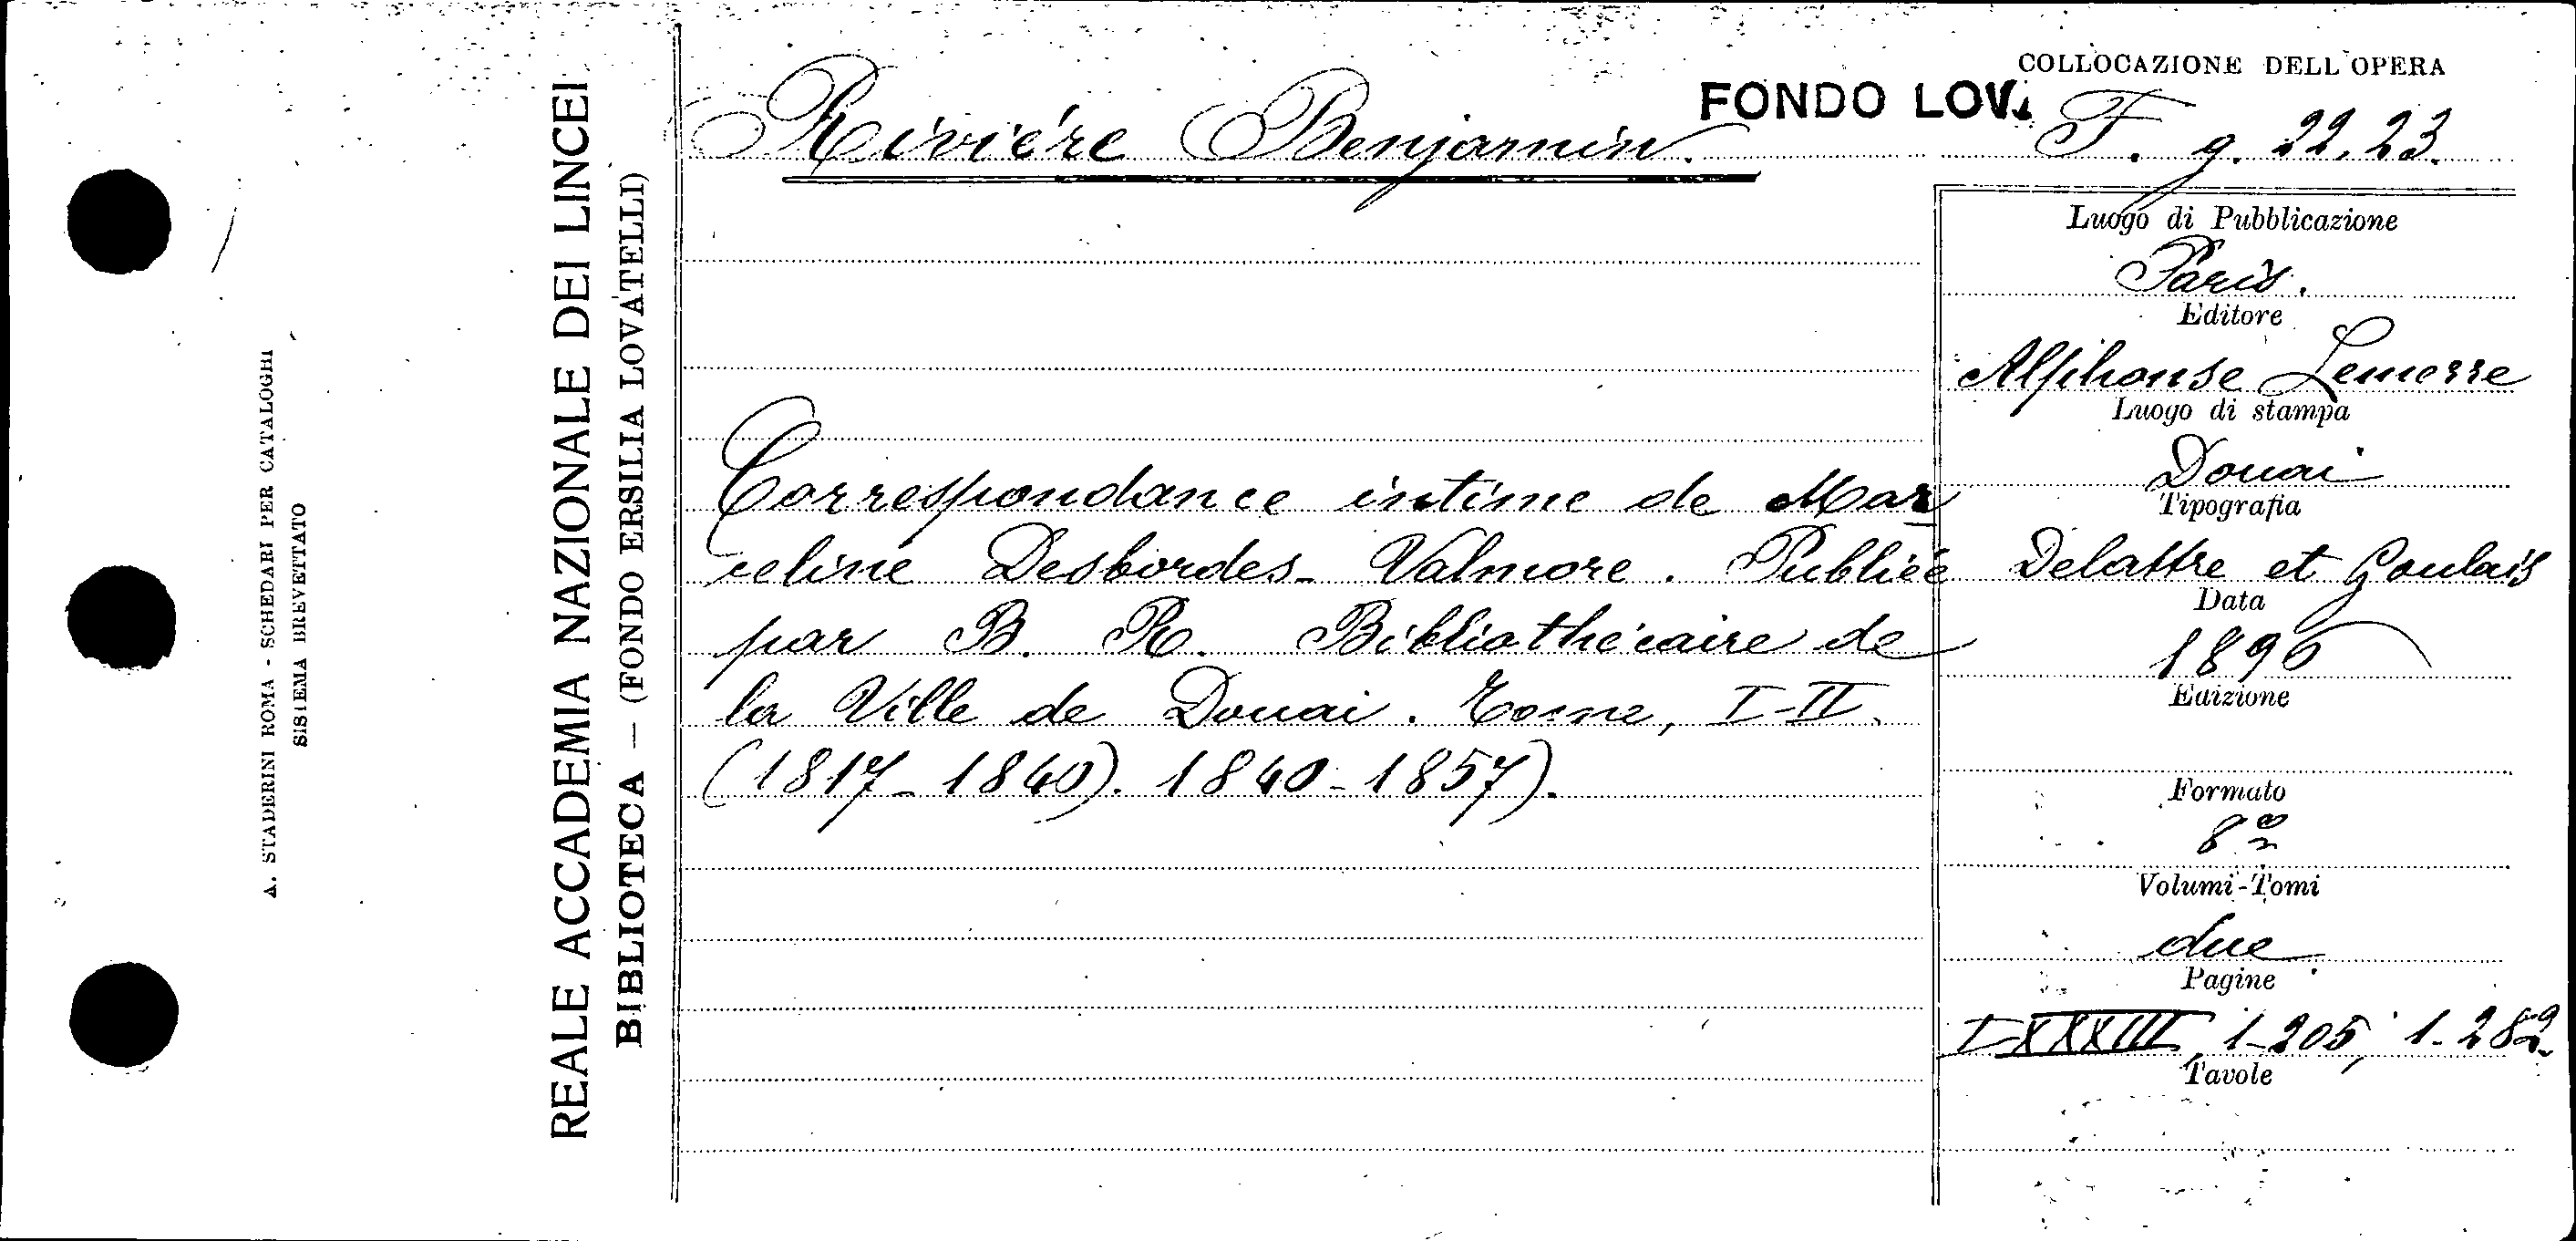 A. STADERINI ROMA - SCHEDARI PER CATALOGHI
SISTEMA BREVETTATO
REALE ACCADEMIA NAZIONALE DEI LINCEI
BIBLIOTECA — (FONDO ERSILIA LOVATELLI)
COLLOCAZIONE DELL'OPERA
FONDO LOV.
F. g. 22. 23.
Rivière Benjamin.
Correspondance intime de Mar
celine Desbordes-Valmore. Publiée
par B. R. Bibliothécaire de
la Ville de Douai. Tome, I-II.
(1817-1840). 1840-1857).
Luogo di Pubblicazione
Paris.
Editore
Alphonse Lemerre
Luogo di stampa
Douai
Tipografia
Delattre et Goulais
Data
1896
Edizione
Formato
8º
Volumi-Tomi
due
Pagine
I-XXXIII, 1-205; 1-282.
Tavole